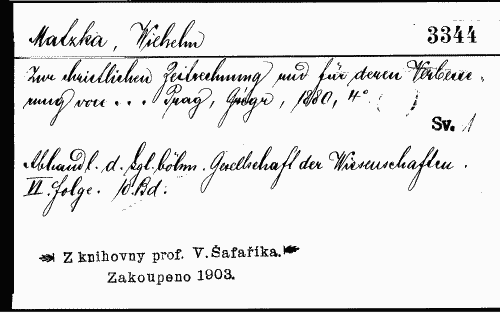 Matzka, Wilhelm 3344
Zur christlichen Zeitrechnung und für deren Verbesse-
rung von ... Prag, Grégr, 1880, 4° ( )
Sv. 1
Abhandl. d. kgl. böhm. Gesellschaft der Wissenschaften.
VI. Folge. 10. Bd.
Z knihovny prof. V. Šafaříka.
Zakoupeno 1903.